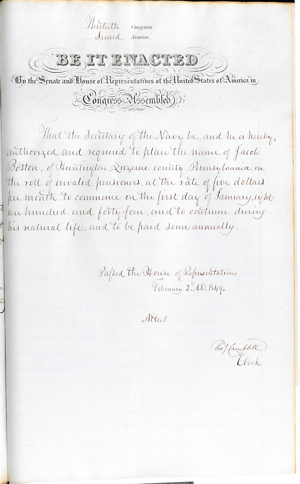 Thirtieth Congress,
Second Session.
BE IT ENACTED
By the Senate and House of Representatives of the United States of America in
Congress Assembled,
That the Secretary of the Navy be, and he is hereby,
authorized and required to place the name of Jacob
Boston, of Huntington, Luzerne county, Pennsylvania on
the roll of invalid pensioners, at the rate of five dollars
per month, to commence on the first day of January, eight-
een hundred and forty-four, and to continue during
his natural life, and to be paid semi-annually.
Passed the House of Representatives
February 2d. AD. 1849.
Attest
Tho J. Campbell
Clerk